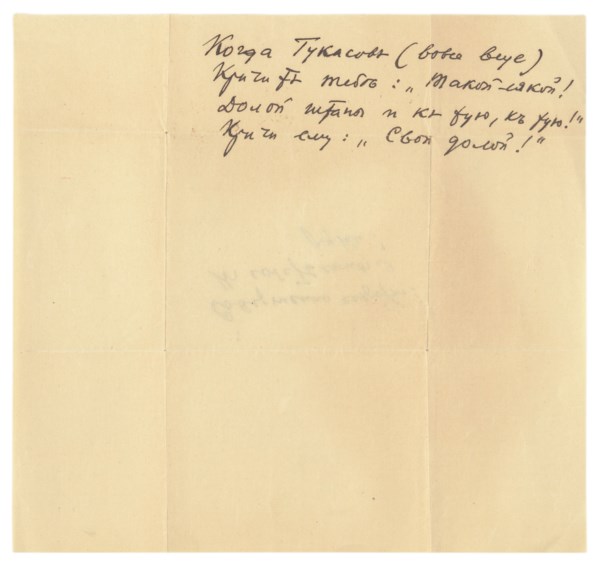 Когда Тукасовъ (вовсе вше)
Кричитъ тебѣ: „Такой-сякой!
Долой штаны и къ хую, къ хую!"
Кричи ему: „Свои долой!"